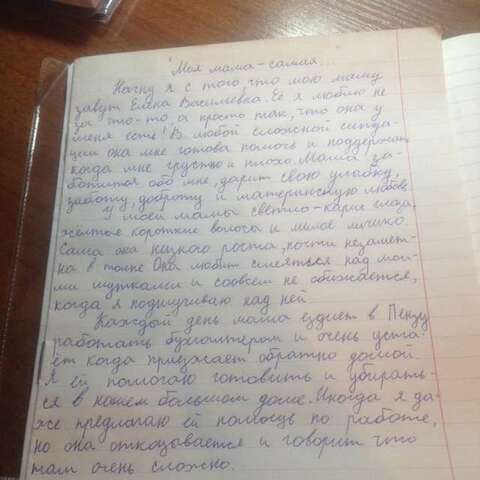 Моя мама-самая...
Начну я с того, что мою маму
зовут Елена Васильевна. Её я люблю не
за что-то, а просто так, что она у
меня есть! В любой сложной ситуа-
ции она мне готова помочь и поддержать
когда мне грустно и плохо. Мама за-
ботится обо мне, дарит свою улыбку,
заботу, доброту и материнскую любовь.
У моей мамы светло-карие глаза,
желтые короткие волосы и милое личико.
Сама она низкого роста, почти незамет-
на в толпе. Она любит смеяться над мои-
ми шутками и совсем не обижается,
когда я подшучиваю над ней.
Каждый день мама ездиет в Пензу
работать бухгалтером и очень уста-
ёт когда приезжает обратно домой.
Я ей помогаю готовить и убирать-
ся в нашем большом доме. Иногда я да-
же предлагаю ей помощь по работе,
но она отказывается и говорит что
там очень сложно.